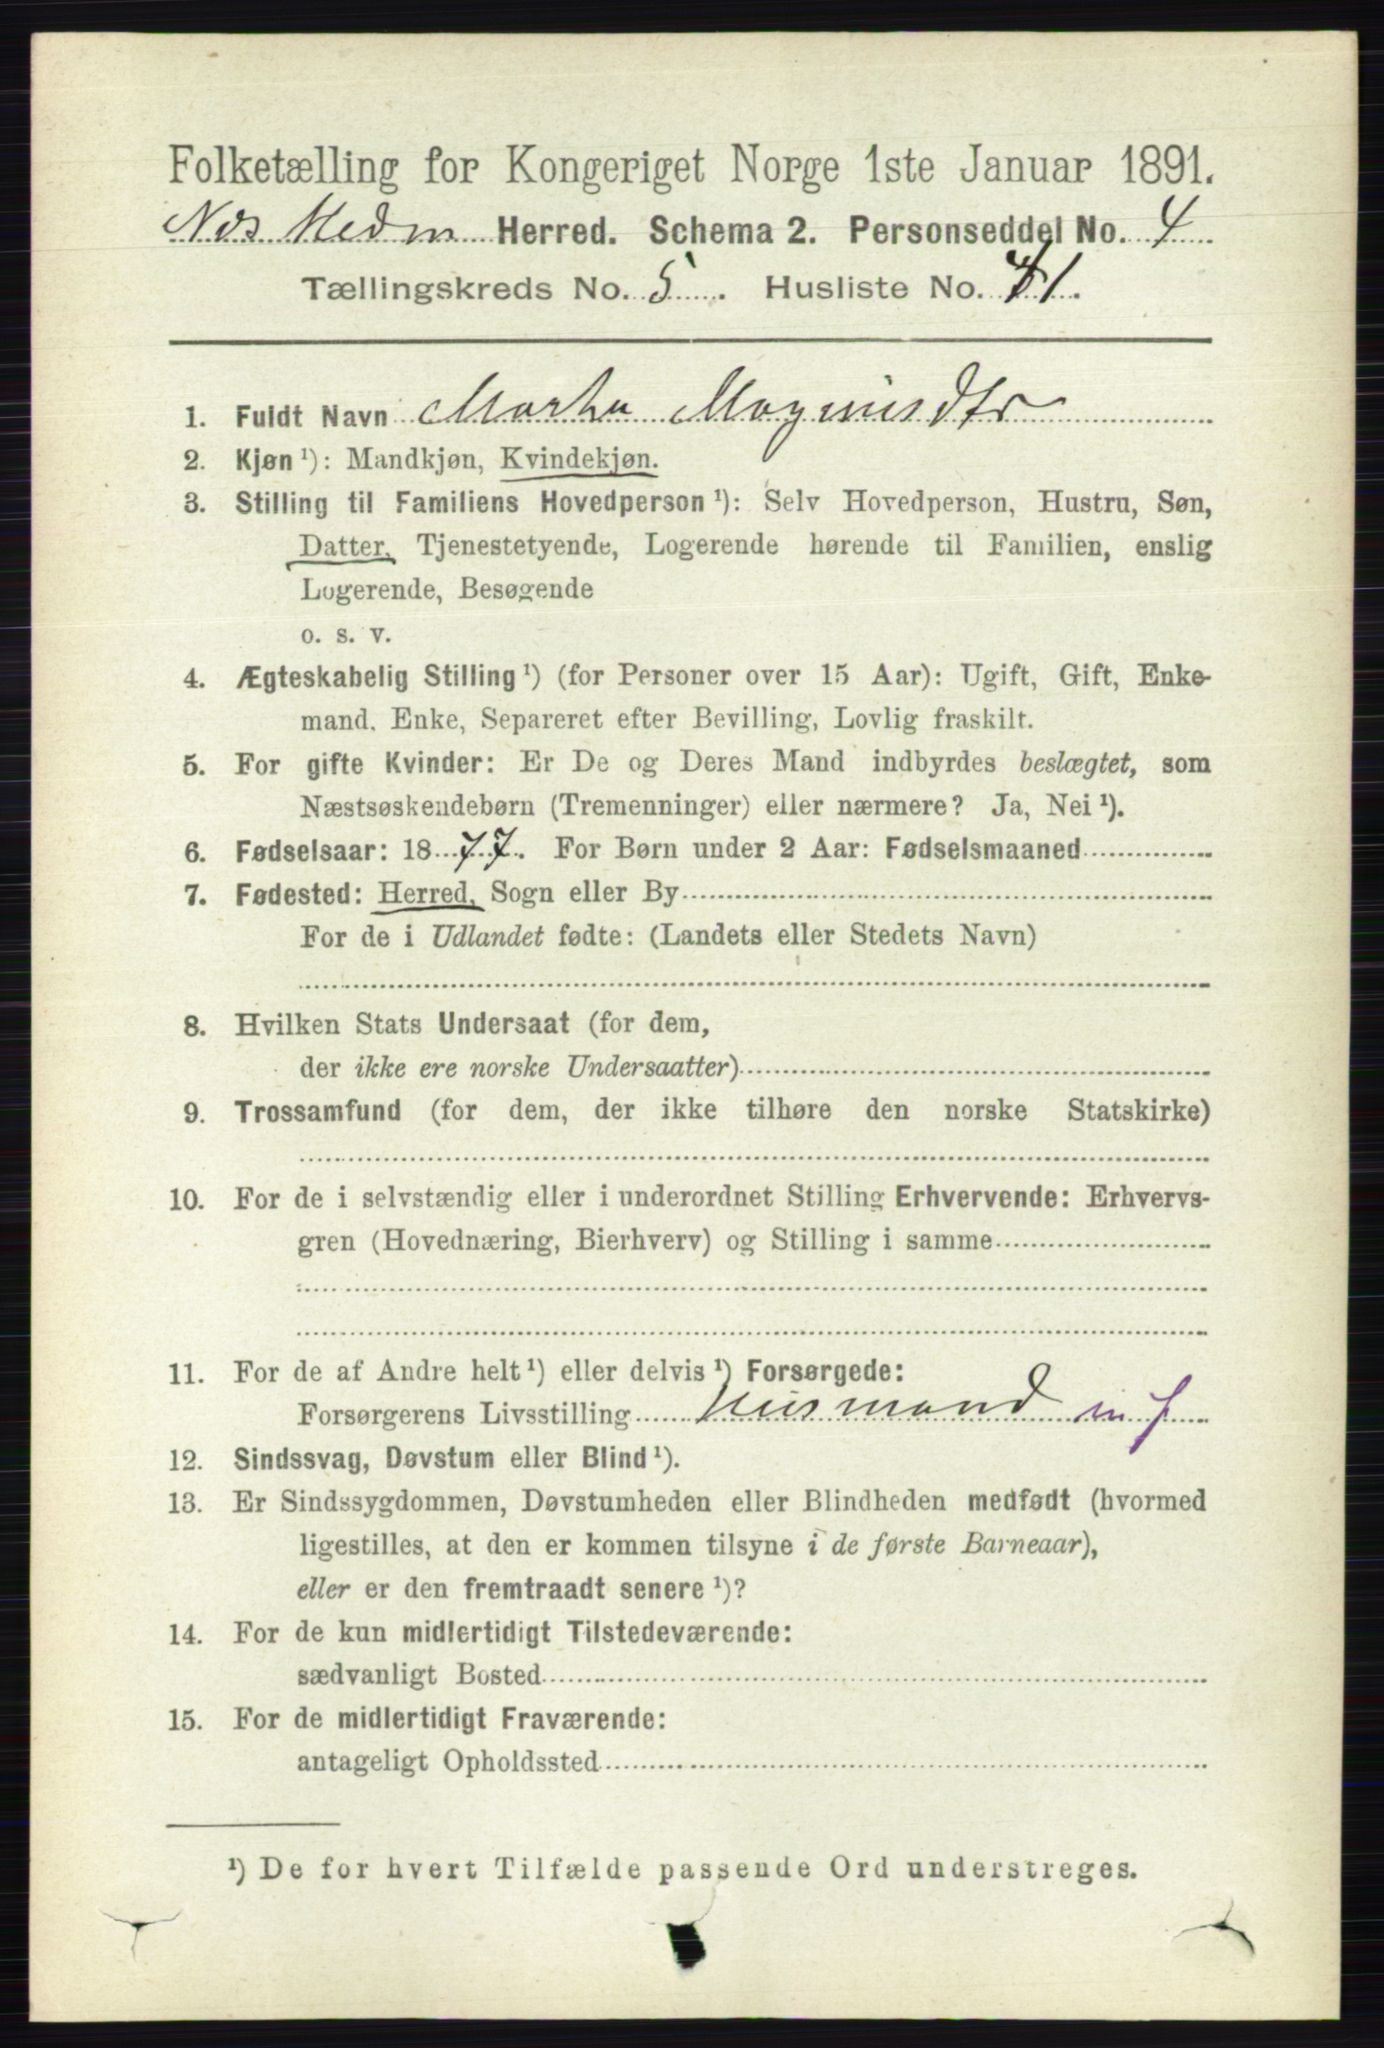 Folketælling for Kongeriget Norge 1ste Januar 1891.
Nes Hedm Herred. Schema 2. Personseddel No. 4
Tællingskreds No. 5. Husliste No. 41.
1. Fuldt Navn Martha Magnusdtr
2. Kjøn ¹): Mandkjøn, Kvindekjøn.
3. Stilling til Familiens Hovedperson ¹): Selv Hovedperson, Hustru, Søn,
Datter, Tjenestetyende, Logerende hørende til Familien, enslig
Logerende, Besøgende
o. s. v.
4. Ægteskabelig Stilling ¹) (for Personer over 15 Aar): Ugift, Gift, Enke-
mand, Enke, Separeret efter Bevilling, Lovlig fraskilt.
5. For gifte Kvinder: Er De og Deres Mand indbyrdes beslægtet, som
Næstsøskendebørn (Tremenninger) eller nærmere? Ja, Nei ¹).
6. Fødselsaar: 1877. For Børn under 2 Aar: Fødselsmaaned
7. Fødested: Herred, Sogn eller By
For de i Udlandet fødte: (Landets eller Stedets Navn)
8. Hvilken Stats Undersaat (for dem,
der ikke ere norske Undersaatter)
9. Trossamfund (for dem, der ikke tilhøre den norske Statskirke)
10. For de i selvstændig eller i underordnet Stilling Erhvervende: Erhvervs-
gren (Hovednæring, Bierhverv) og Stilling i samme
11. For de af Andre helt ¹) eller delvis ¹) Forsørgede:
Forsørgerens Livsstilling Husmand m J
12. Sindssvag, Døvstum eller Blind ¹).
13. Er Sindssygdommen, Døvstumheden eller Blindheden medfødt (hvormed
ligestilles, at den er kommen tilsyne i de første Barneaar),
eller er den fremtraadt senere ¹)?
14. For de kun midlertidigt Tilstedeværende:
sædvanligt Bosted
15. For de midlertidigt Fraværende:
antageligt Opholdssted
¹) De for hvert Tilfælde passende Ord understreges.